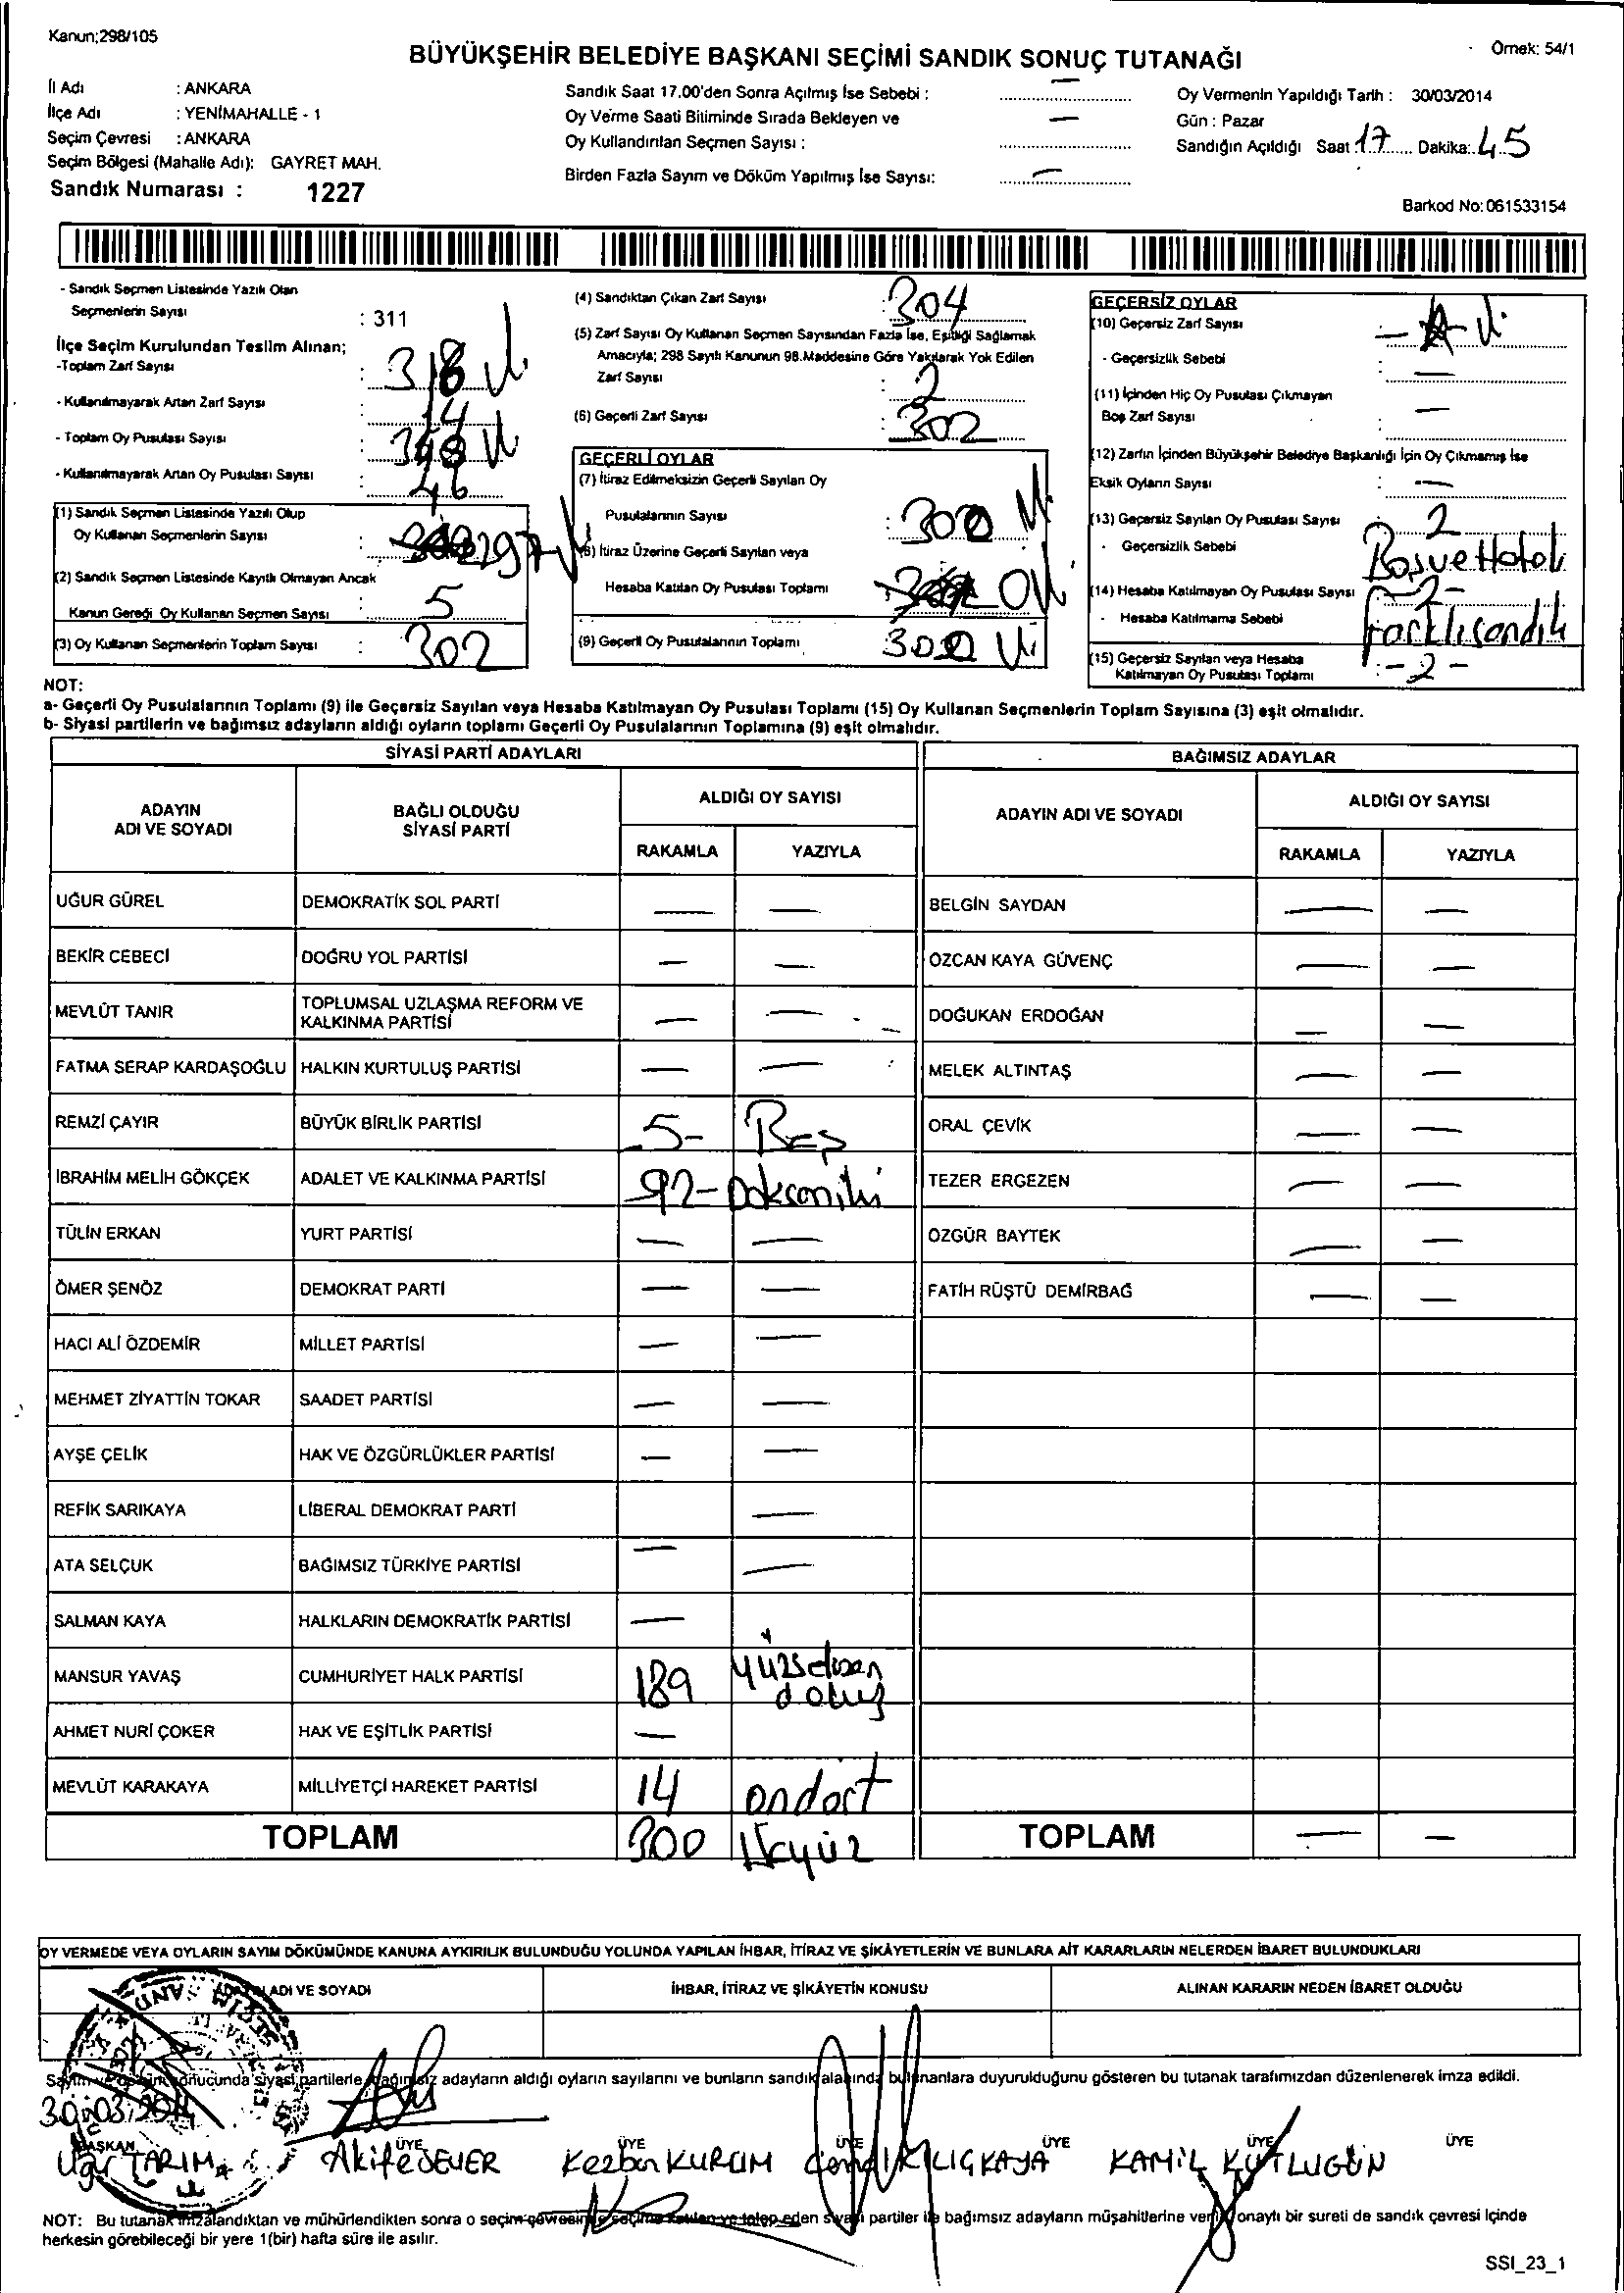 Kanun;298/105
BÜYÜKŞEHİR BELEDİYE BAŞKANI SEÇİMİ SANDIK SONUÇ TUTANAĞI
Örnek: 54/1
İl Adı : ANKARA
İlçe Adı : YENİMAHALLE - 1
Seçim Çevresi : ANKARA
Seçim Bölgesi (Mahalle Adı): GAYRET MAH.
Sandık Numarası : 1227
Sandık Saat 17.00'den Sonra Açılmış İse Sebebi : —
Oy Verme Saati Bitiminde Sırada Bekleyen ve
Oy Kullandırılan Seçmen Sayısı : —
Birden Fazla Sayım ve Döküm Yapılmış İse Sayısı: —
Oy Vermenin Yapıldığı Tarih : 30/03/2014
Gün : Pazar
Sandığın Açıldığı Saat 17 Dakika: 45
Barkod No:061533154
- Sandık Seçmen Listesinde Yazılı Olan
Seçmenlerin Sayısı : 311
İlçe Seçim Kurulundan Teslim Alınan;
-Toplam Zarf Sayısı : 318
- Kullanılmayarak Artan Zarf Sayısı : 14
- Toplam Oy Pusulası Sayısı : 348
- Kullanılmayarak Artan Oy Pusulası Sayısı : 46
(1) Sandık Seçmen Listesinde Yazılı Olup
Oy Kullanan Seçmenlerin Sayısı : 297
(2) Sandık Seçmen Listesinde Kayıtlı Olmayan Ancak
Kanun Gereği Oy Kullanan Seçmen Sayısı : 5
(3) Oy Kullanan Seçmenlerin Toplam Sayısı : 302
(4) Sandıktan Çıkan Zarf Sayısı : 304
(5) Zarf Sayısı Oy Kullanan Seçmen Sayısından Fazla İse, Eşitliği Sağlamak
Amacıyla; 298 Sayılı Kanunun 98.Maddesine Göre Yakılarak Yok Edilen
Zarf Sayısı : 2
(6) Geçerli Zarf Sayısı : 302
GEÇERLİ OYLAR
(7) İtiraz Edilmeksizin Geçerli Sayılan Oy
Pusulalarının Sayısı : 300
(8) İtiraz Üzerine Geçerli Sayılan veya
Hesaba Katılan Oy Pusulası Toplamı : 0
(9) Geçerli Oy Pusulalarının Toplamı : 300
GEÇERSİZ OYLAR
(10) Geçersiz Zarf Sayısı : -
- Geçersizlik Sebebi : —
(11) İçinden Hiç Oy Pusulası Çıkmayan
Boş Zarf Sayısı : —
(12) Zarfın İçinden Büyükşehir Belediye Başkanlığı İçin Oy Çıkmamış İse
Eksik Oyların Sayısı : —
(13) Geçersiz Sayılan Oy Pusulası Sayısı : 2
- Geçersizlik Sebebi Boş ve Hatalı
(14) Hesaba Katılmayan Oy Pusulası Sayısı : -2-
- Hesaba Katılmama Sebebi farklı sandık
(15) Geçersiz Sayılan veya Hesaba
Katılmayan Oy Pusulası Toplamı : -2-
NOT:
a- Geçerli Oy Pusulalarının Toplamı (9) ile Geçersiz Sayılan veya Hesaba Katılmayan Oy Pusulası Toplamı (15) Oy Kullanan Seçmenlerin Toplam Sayısına (3) eşit olmalıdır.
b- Siyasi partilerin ve bağımsız adayların aldığı oyların toplamı Geçerli Oy Pusulalarının Toplamına (9) eşit olmalıdır.
SİYASİ PARTİ ADAYLARI BAĞIMSIZ ADAYLAR
ADAYIN ADI VE SOYADI BAĞLI OLDUĞU SİYASİ PARTİ ALDIĞI OY SAYISI ADAYIN ADI VE SOYADI ALDIĞI OY SAYISI
RAKAMLA YAZIYLA RAKAMLA YAZIYLA
UĞUR GÜREL DEMOKRATİK SOL PARTİ — — BELGİN SAYDAN — —
BEKİR CEBECİ DOĞRU YOL PARTİSİ — — ÖZCAN KAYA GÜVENÇ — —
MEVLÜT TANIR TOPLUMSAL UZLAŞMA REFORM VE KALKINMA PARTİSİ — — DOĞUKAN ERDOĞAN — —
FATMA SERAP KARDAŞOĞLU HALKIN KURTULUŞ PARTİSİ — — MELEK ALTINTAŞ — —
REMZİ ÇAYIR BÜYÜK BİRLİK PARTİSİ -5- Beş ORAL ÇEVİK — —
İBRAHİM MELİH GÖKÇEK ADALET VE KALKINMA PARTİSİ 92- Doksaniki TEZER ERGEZEN — —
TÜLİN ERKAN YURT PARTİSİ — — ÖZGÜR BAYTEK — —
ÖMER ŞENÖZ DEMOKRAT PARTİ — — FATİH RÜŞTÜ DEMİRBAĞ — —
HACI ALİ ÖZDEMİR MİLLET PARTİSİ — —
MEHMET ZİYATTİN TOKAR SAADET PARTİSİ — —
AYŞE ÇELİK HAK VE ÖZGÜRLÜKLER PARTİSİ — —
REFİK SARIKAYA LİBERAL DEMOKRAT PARTİ —
ATA SELÇUK BAĞIMSIZ TÜRKİYE PARTİSİ — —
SALMAN KAYA HALKLARIN DEMOKRATİK PARTİSİ —
MANSUR YAVAŞ CUMHURİYET HALK PARTİSİ 189 yüzseksen dokuz
AHMET NURİ ÇOKER HAK VE EŞİTLİK PARTİSİ —
MEVLÜT KARAKAYA MİLLİYETÇİ HAREKET PARTİSİ 14 ondört
TOPLAM 300 Üçyüz TOPLAM — —
OY VERMEDE VEYA OYLARIN SAYIM DÖKÜMÜNDE KANUNA AYKIRILIK BULUNDUĞU YOLUNDA YAPILAN İHBAR, İTİRAZ VE ŞİKÂYETLERİN VE BUNLARA AİT KARARLARIN NELERDEN İBARET BULUNDUKLARI
ADI VE SOYADI İHBAR, İTİRAZ VE ŞİKÂYETİN KONUSU ALINAN KARARIN NEDEN İBARET OLDUĞU
Sayım ve döküm sonucunda siyasi partilerle bağımsız adayların aldığı oyların sayılarını ve bunların sandık alanında bulunanlara duyurulduğunu gösteren bu tutanak tarafımızdan düzenlenerek imza edildi.
30.03.2014
BAŞKAN ÜYE ÜYE ÜYE ÜYE ÜYE ÜYE
Uğur TARIM Akife SEVER Kezban KURUM KILIÇKAYA KAMİL KUTLUGÜN
NOT: Bu tutanak imzalandıktan ve mühürlendikten sonra o seçim çevresinde seçime katılan ve talep eden siyasi partiler ile bağımsız adayların müşahitlerine verilir, onaylı bir sureti de sandık çevresi içinde
herkesin görebileceği bir yere 1(bir) hafta süre ile asılır.
SSI_23_1